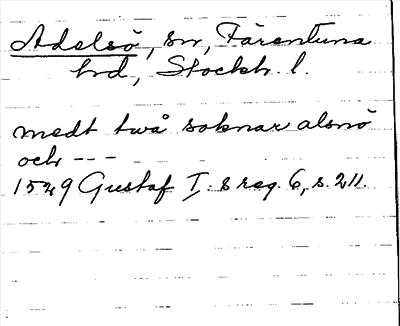 Adelsö, sn, Färentuna
hd, Stockh. l.
medt twå soknar alsnö
och - - -
1529 Gustaf I:s reg. 6, s. 211.